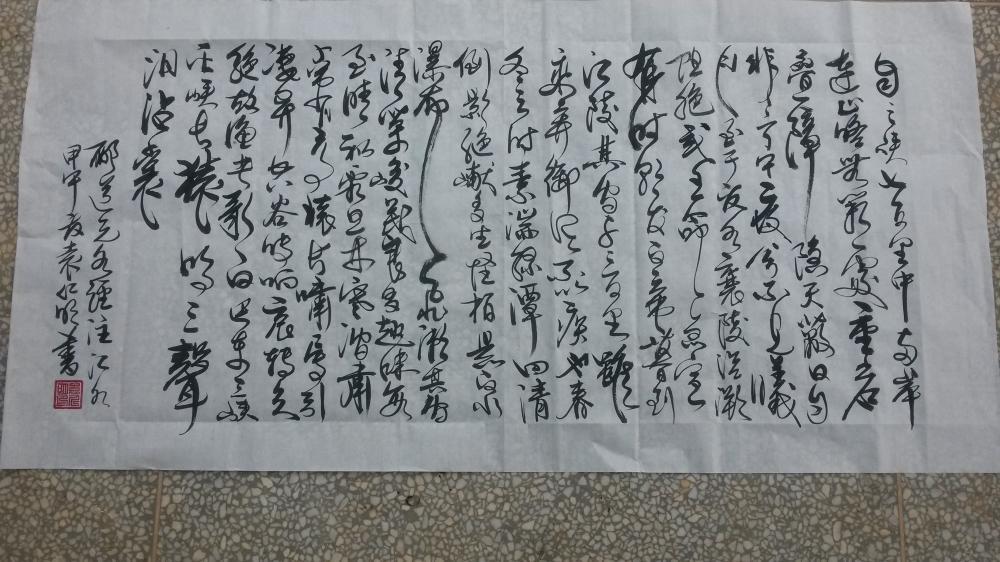 自三峡七百里中两岸
連山略無闕處重岩
疊嶂隱天蔽日自
非亭午夜分不見曦
月至于夏水襄陵沿溯
阻絕或王命急宣
有時朝發白帝暮到
江陵其间千二百里雖
乘奔御風不以疾也春
冬之时素湍綠潭回清
倒影絕巘多生怪柏悬泉
瀑布飛漱其間
清榮峻茂良多趣味每
至晴初霜旦林寒澗肅
常有高猿長嘯属引
凄异空谷傳响哀转久
絕故漁者歌曰巴东三峡
巫峡长猿鸣三聲
泪沾裳
酈道元水經注江水
甲午夏袁仁明書